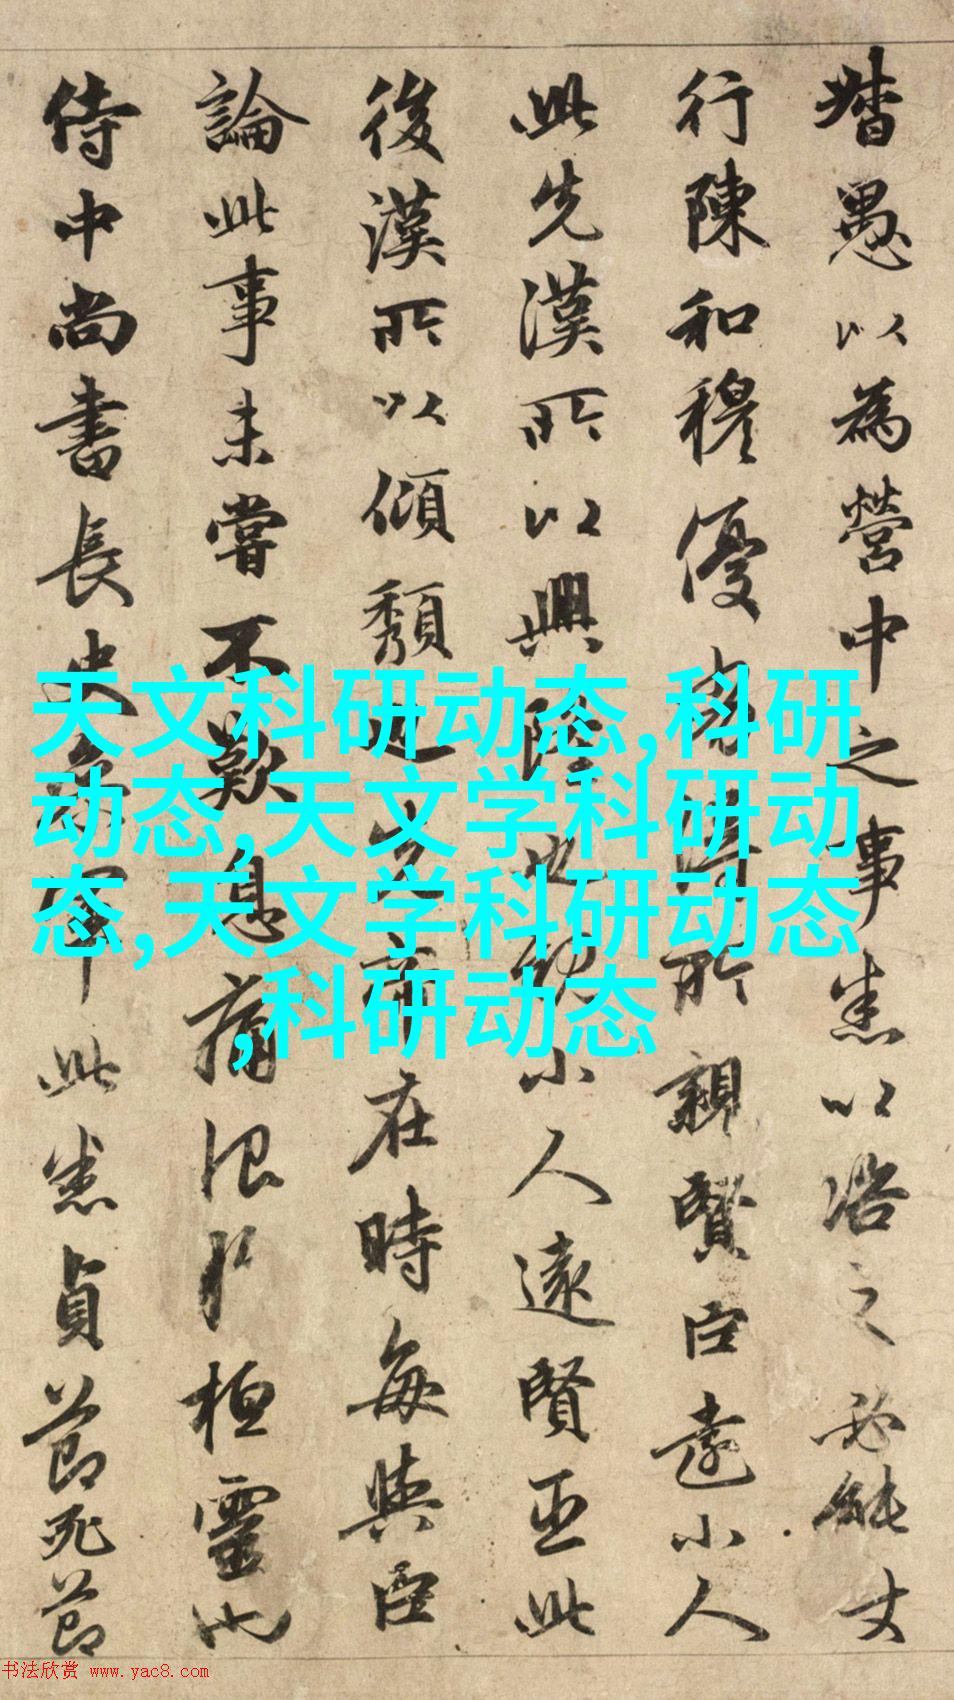 督愚以為營中之事悉以咨之必能使
行陳和穆優劣得所親賢臣遠小人
此先漢所以興隆也親小人遠賢臣此
後漢所以傾頹也先帝在時每與臣
論此事未嘗不歎息痛恨於桓靈也
侍中尚書長史參軍此悉貞節死節
天文科研动态,科研
动态,天文学科研动
态,天文学科研动态
,科研动态
书法欣赏 www.yac8.com